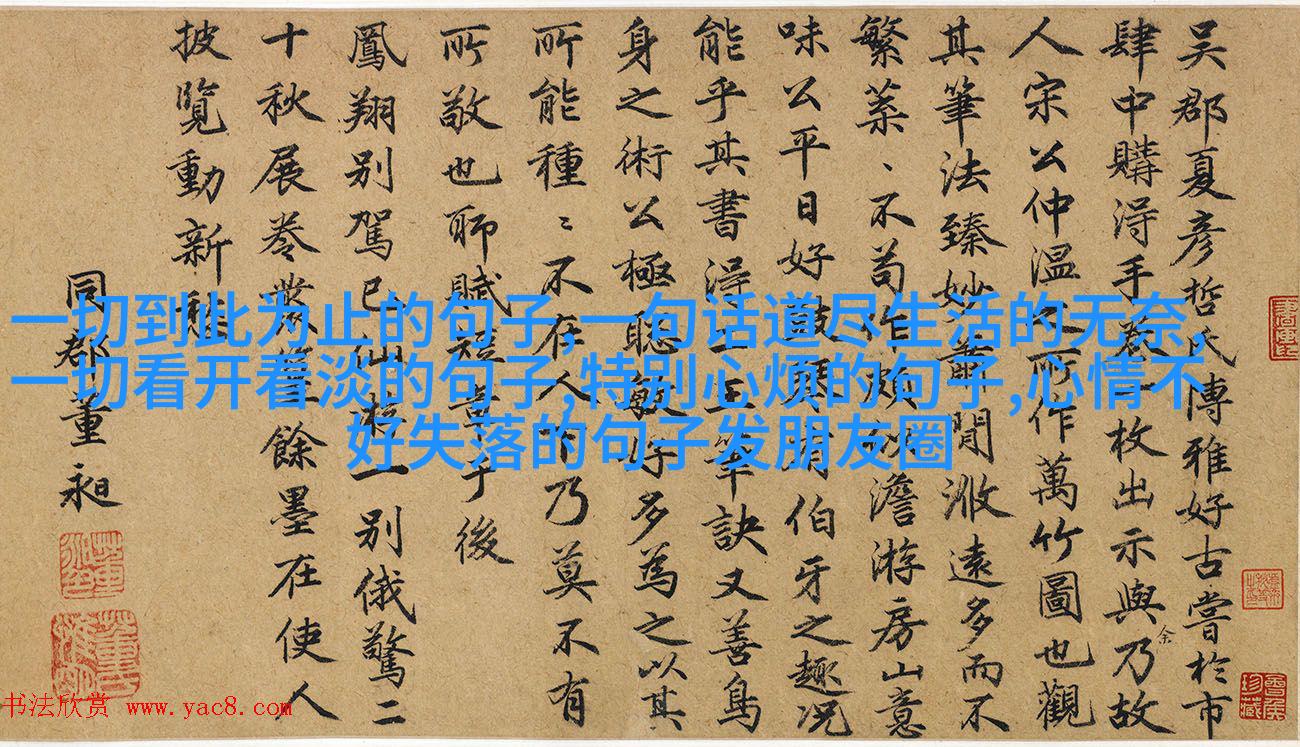 吴郡夏彦哲氏博雅好古嘗於市
肆中購得手卷一枚出示與余乃故
人宋公仲温之所作萬竹圖也觀
其筆法臻妙蕭閒滌遠多而不
繁蓁、不苟作煩似澹游房山意
味公平日好鼓頻有伯牙之趣况
能乎其書得二王筆訣又善鳥
身之術公極聰敏好多為之以其
所能種〻不在人下乃莫不有
所敬也聊賦短章于後
鳳翔别駕已仙游一别俄驚二
十秋展卷叢筆餘墨在使人
披覽動新愁
同郡董昶
一切到此为止的句子,一句话道尽生活的无奈,
一切看开看淡的句子,特别心烦的句子,心情不
好失落的句子发朋友圈
书法欣赏 www.yac8.com